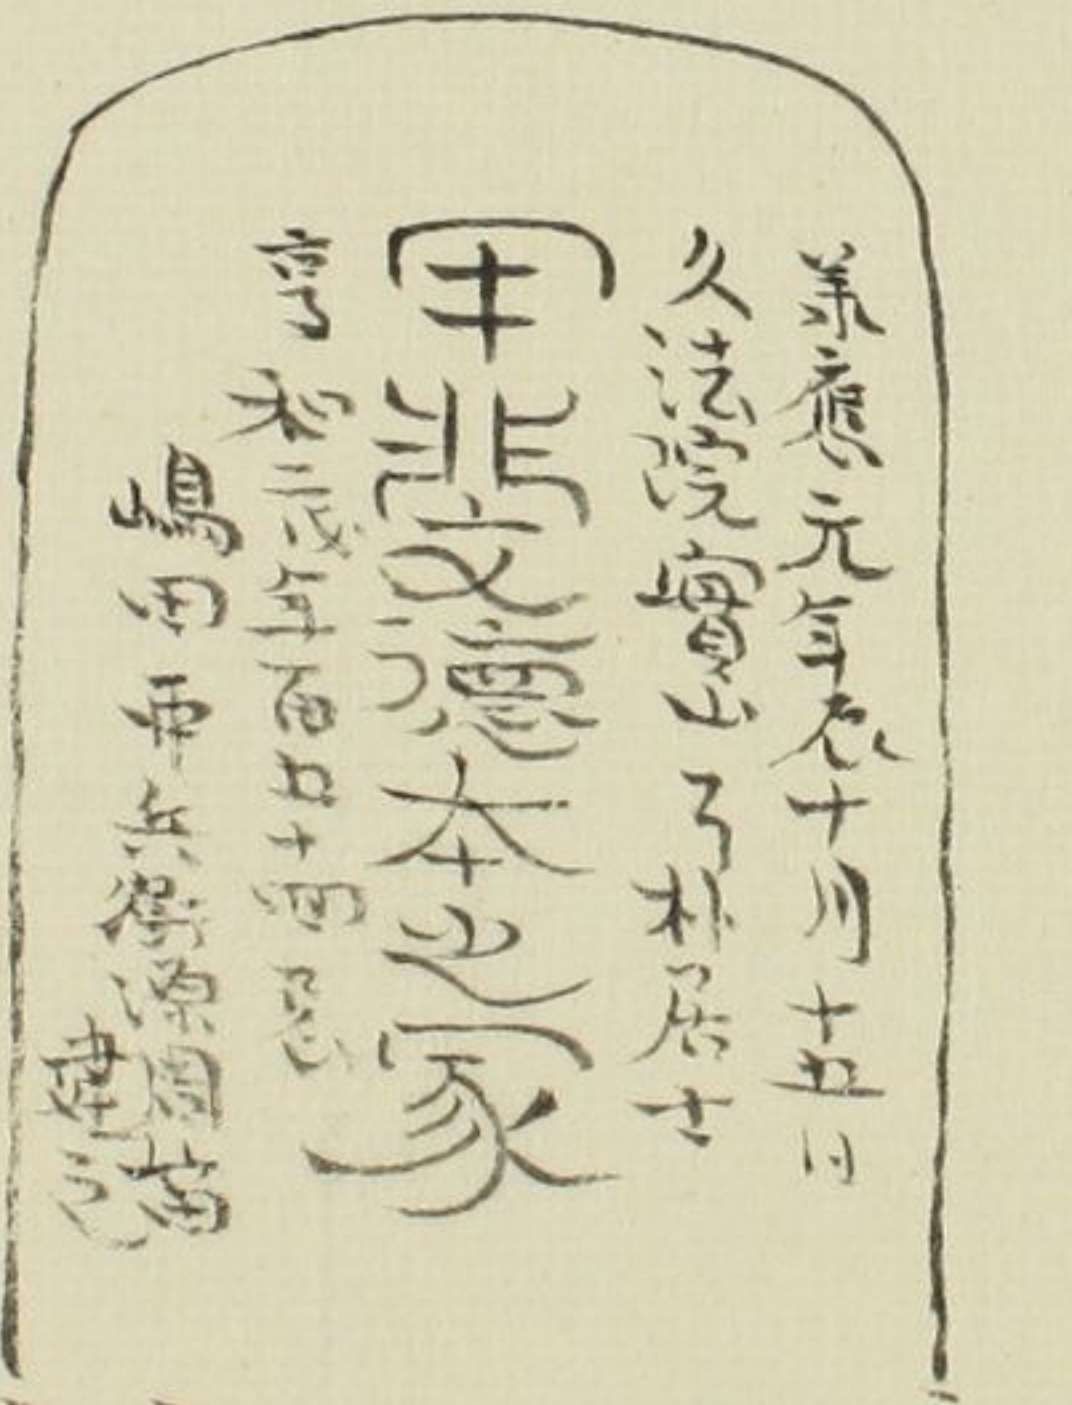 承應元年辰十月十五日
久法院實山了朴居士
甲斐德本之冢
享和二戌年百五十回忌
嶋田兵衛源
建之